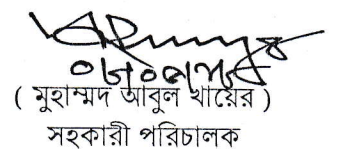 ( মুহাম্মদ আবুল খায়ের )
সহকারী পরিচালক